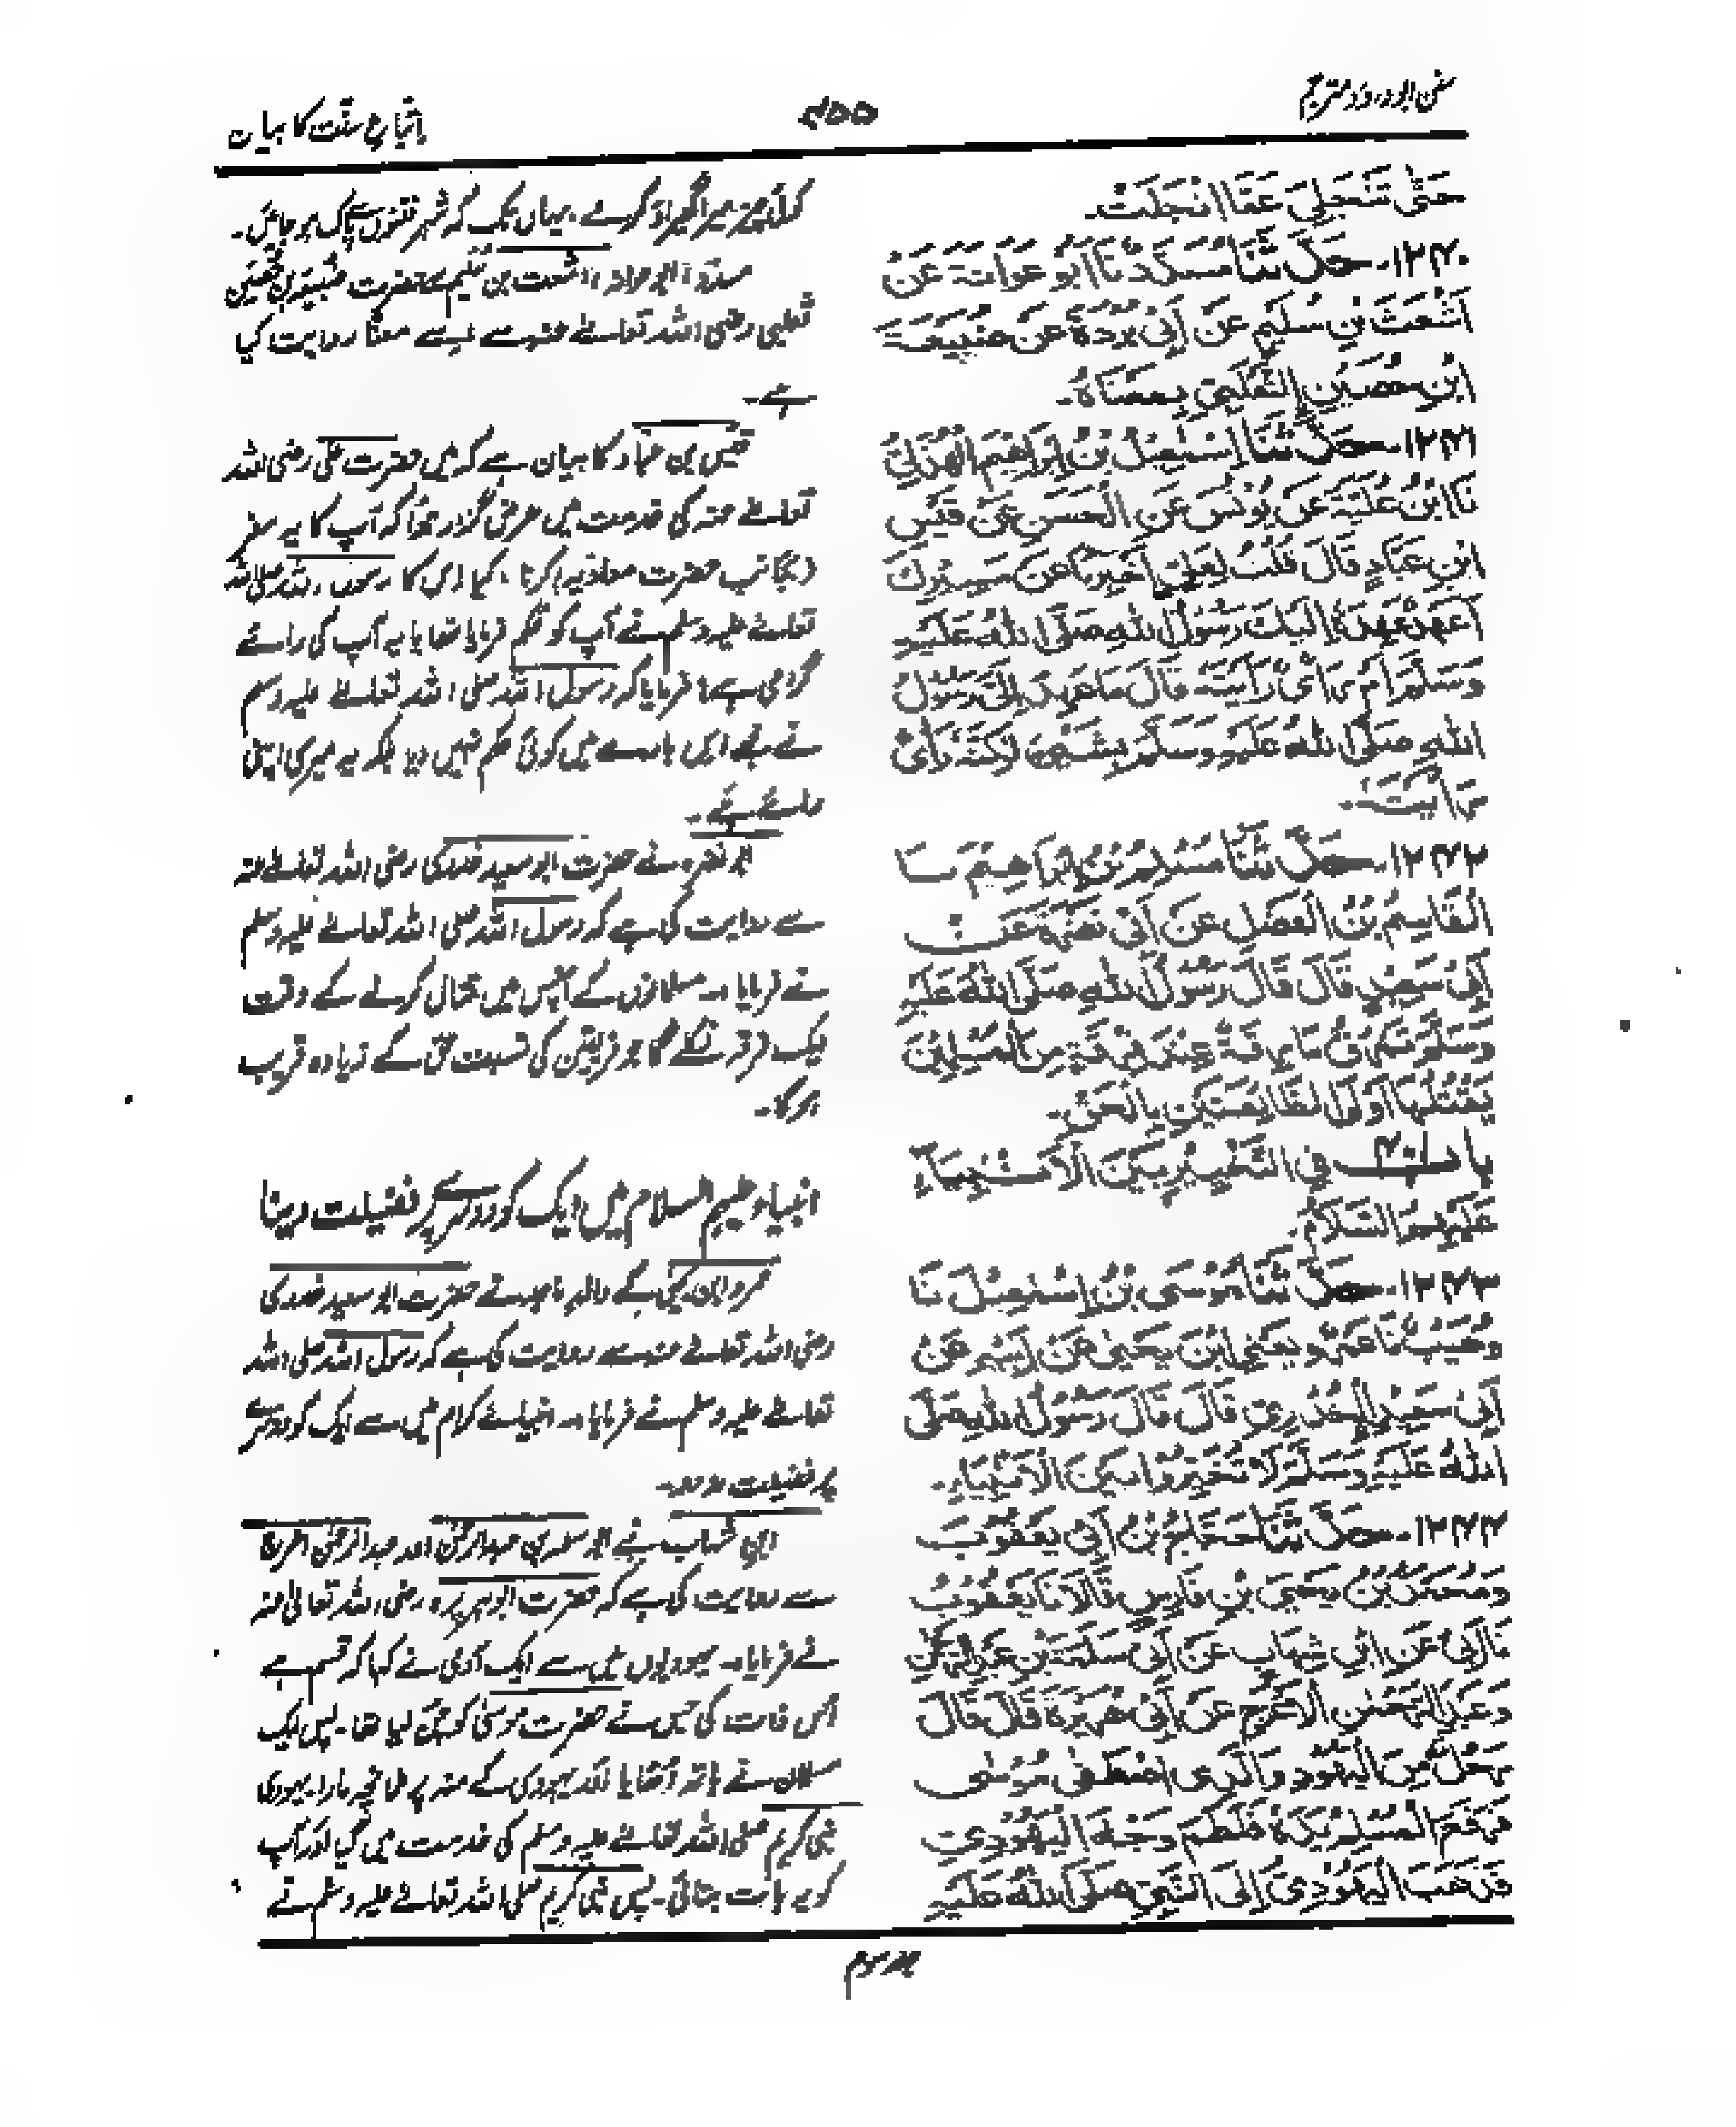 سنن ابوداؤد مترجم
۴۵۵
اتباع سنّت کا بیان
حَتّٰى تَنْجَلِيَ عَمَّا انْجَلَتْ۔
۱۲۴۰۔ حَدَّثَنَا مُسَدَّدٌ نَا اَبُوْ عَوَانَةَ عَنْ
اَشْعَثَ بْنِ سُلَيْمٍ عَنْ اَبِيْ بُرْدَةَ عَنْ ضُبَيْعَةَ
ابْنِ حُصَيْنٍ الثَّعْلَبِيِّ بِمَعْنَاهُ۔
۱۲۴۱۔ حَدَّثَنَا اِسْمٰعِيْلُ بْنُ اِبْرَاهِيْمَ الْهُذَلِيُّ
نَا ابْنُ عُلَيَّةَ عَنْ يُوْنُسَ عَنِ الْحَسَنِ عَنْ قَيْسِ
ابْنِ عَبَّادٍ قَالَ قُلْتُ لِعَلِيٍّ اَخْبِرْنَا عَنْ مَسِيْرِكَ
اَعَهْدٌ عَهِدَهُ اِلَيْكَ رَسُوْلُ اللهِ صَلَّى اللهُ عَلَيْهِ
وَسَلَّمَ اَمْ رَأْيٌ رَاَيْتَهُ قَالَ مَا عَهِدَ اِلَيَّ رَسُوْلُ
اللهِ صَلَّى اللهُ عَلَيْهِ وَسَلَّمَ بِشَيْءٍ وَلٰكِنَّهُ رَأْيٌ
رَاَيْتُ۔
۱۲۴۲۔ حَدَّثَنَا مُسْلِمُ بْنُ اِبْرَاهِيْمَ نَا
الْقَاسِمُ بْنُ الْفَضْلِ عَنْ اَبِيْ نَضْرَةَ عَنْ
اَبِيْ سَعِيْدٍ قَالَ قَالَ رَسُوْلُ اللهِ صَلَّى اللهُ عَلَيْهِ
وَسَلَّمَ تَمْرُقُ مَارِقَةٌ عِنْدَ فُرْقَةٍ مِنَ الْمُسْلِمِيْنَ
يَقْتُلُهَا اَوْلَى الطَّائِفَتَيْنِ بِالْحَقِّ۔
بَاب فِي التَّخْيِيْرِ بَيْنَ الْاَنْبِيَاءِ
عَلَيْهِمُ السَّلَامُ۔
۱۲۴۳۔ حَدَّثَنَا مُوْسَى بْنُ اِسْمٰعِيْلَ نَا
وُهَيْبٌ نَا عَمْرٌو يَعْنِي ابْنَ يَحْيٰى عَنْ اَبِيْهِ عَنْ
اَبِيْ سَعِيْدٍ الْخُدْرِيِّ قَالَ قَالَ رَسُوْلُ اللهِ صَلَّى
اللهُ عَلَيْهِ وَسَلَّمَ لَا تُخَيِّرُوْا بَيْنَ الْاَنْبِيَاءِ۔
۱۲۴۴۔ حَدَّثَنَا حَجَّاجُ بْنُ اَبِيْ يَعْقُوْبَ
وَمُحَمَّدُ بْنُ يَحْيَى بْنِ فَارِسٍ قَالَا نَا يَعْقُوْبُ
نَا اَبِيْ عَنِ ابْنِ شِهَابٍ عَنْ اَبِيْ سَلَمَةَ بْنِ عَبْدِ الرَّحْمٰنِ
وَعَبْدِ الرَّحْمٰنِ الْاَعْرَجِ عَنْ اَبِيْ هُرَيْرَةَ قَالَ قَالَ
رَجُلٌ مِنَ الْيَهُوْدِ وَالَّذِي اصْطَفٰى مُوْسٰى
فَرَفَعَ الْمُسْلِمُ يَدَهُ فَلَطَمَ وَجْهَ الْيَهُوْدِيِّ
فَذَهَبَ الْيَهُوْدِيُّ اِلَى النَّبِيِّ صَلَّى اللهُ عَلَيْهِ
کوئی چیز میرا گھیراؤ کرے۔ یہاں تک کہ شہر فتنوں سے پاک ہو جائیں۔
مسدّد، ابو عوانہ، اشعث بن سلیم سے حضرت ضبیعہ بن حُصین
ثعلبی رضی اللہ تعالیٰ عنہ سے اسے معنًا روایت کیا
ہے۔
قیس بن عباد کا بیان ہے کہ میں حضرت علی رضی اللہ
تعالیٰ عنہ کی خدمت میں عرض گزار ہوا کہ آپ کا یہ سفر
(بجانب حضرت معاویہ) کرنا، کیا اس کا رسول اللہ صلی اللہ
تعالیٰ علیہ وسلم نے آپ کو حکم فرمایا تھا یا یہ آپ کی رائے
گرامی ہے؟ فرمایا کہ رسول اللہ صلی اللہ تعالیٰ علیہ وسلم
نے مجھے اس بارے میں کوئی حکم نہیں دیا بلکہ یہ میری اپنی
رائے ہے۔
ابو نضرہ نے حضرت ابو سعید خدری رضی اللہ تعالیٰ عنہ
سے روایت کی ہے کہ رسول اللہ صلی اللہ تعالیٰ علیہ وسلم
نے فرمایا:۔ مسلمانوں کے آپس میں قتال کرنے کے وقت
ایک فرقہ نکلے گا جو فریقین کی نسبت حق کے زیادہ قریب
ہو گا۔
انبیاء علیہم السلام میں ایک کو دوسرے پر فضیلت دینا
عمرو ابن یحییٰ کے والد ماجد نے حضرت ابو سعید خدری
رضی اللہ تعالیٰ عنہ سے روایت کی ہے کہ رسول اللہ صلی اللہ
تعالیٰ علیہ وسلم نے فرمایا:۔ انبیائے کرام میں سے ایک کو دوسرے
پر فضیلت نہ دو۔
ابن شہاب نے ابو سلمہ بن عبدالرحمٰن اور عبدالرحمٰن اعرج
سے روایت کی ہے کہ حضرت ابوہریرہ رضی اللہ تعالیٰ عنہ
نے فرمایا:۔ یہودیوں میں سے ایک آدمی نے کہا کہ قسم ہے
اس ذات کی جس نے حضرت موسیٰ کو چن لیا تھا۔ پس ایک
مسلمان نے ہاتھ اُٹھایا اور یہودی کے منہ پر طمانچہ مارا۔ یہودی
نبی کریم صلی اللہ تعالیٰ علیہ وسلم کی خدمت میں گیا اور آپ
کو یہ بات بتائی۔ پس نبی کریم صلی اللہ تعالیٰ علیہ وسلم نے
جلد سوم